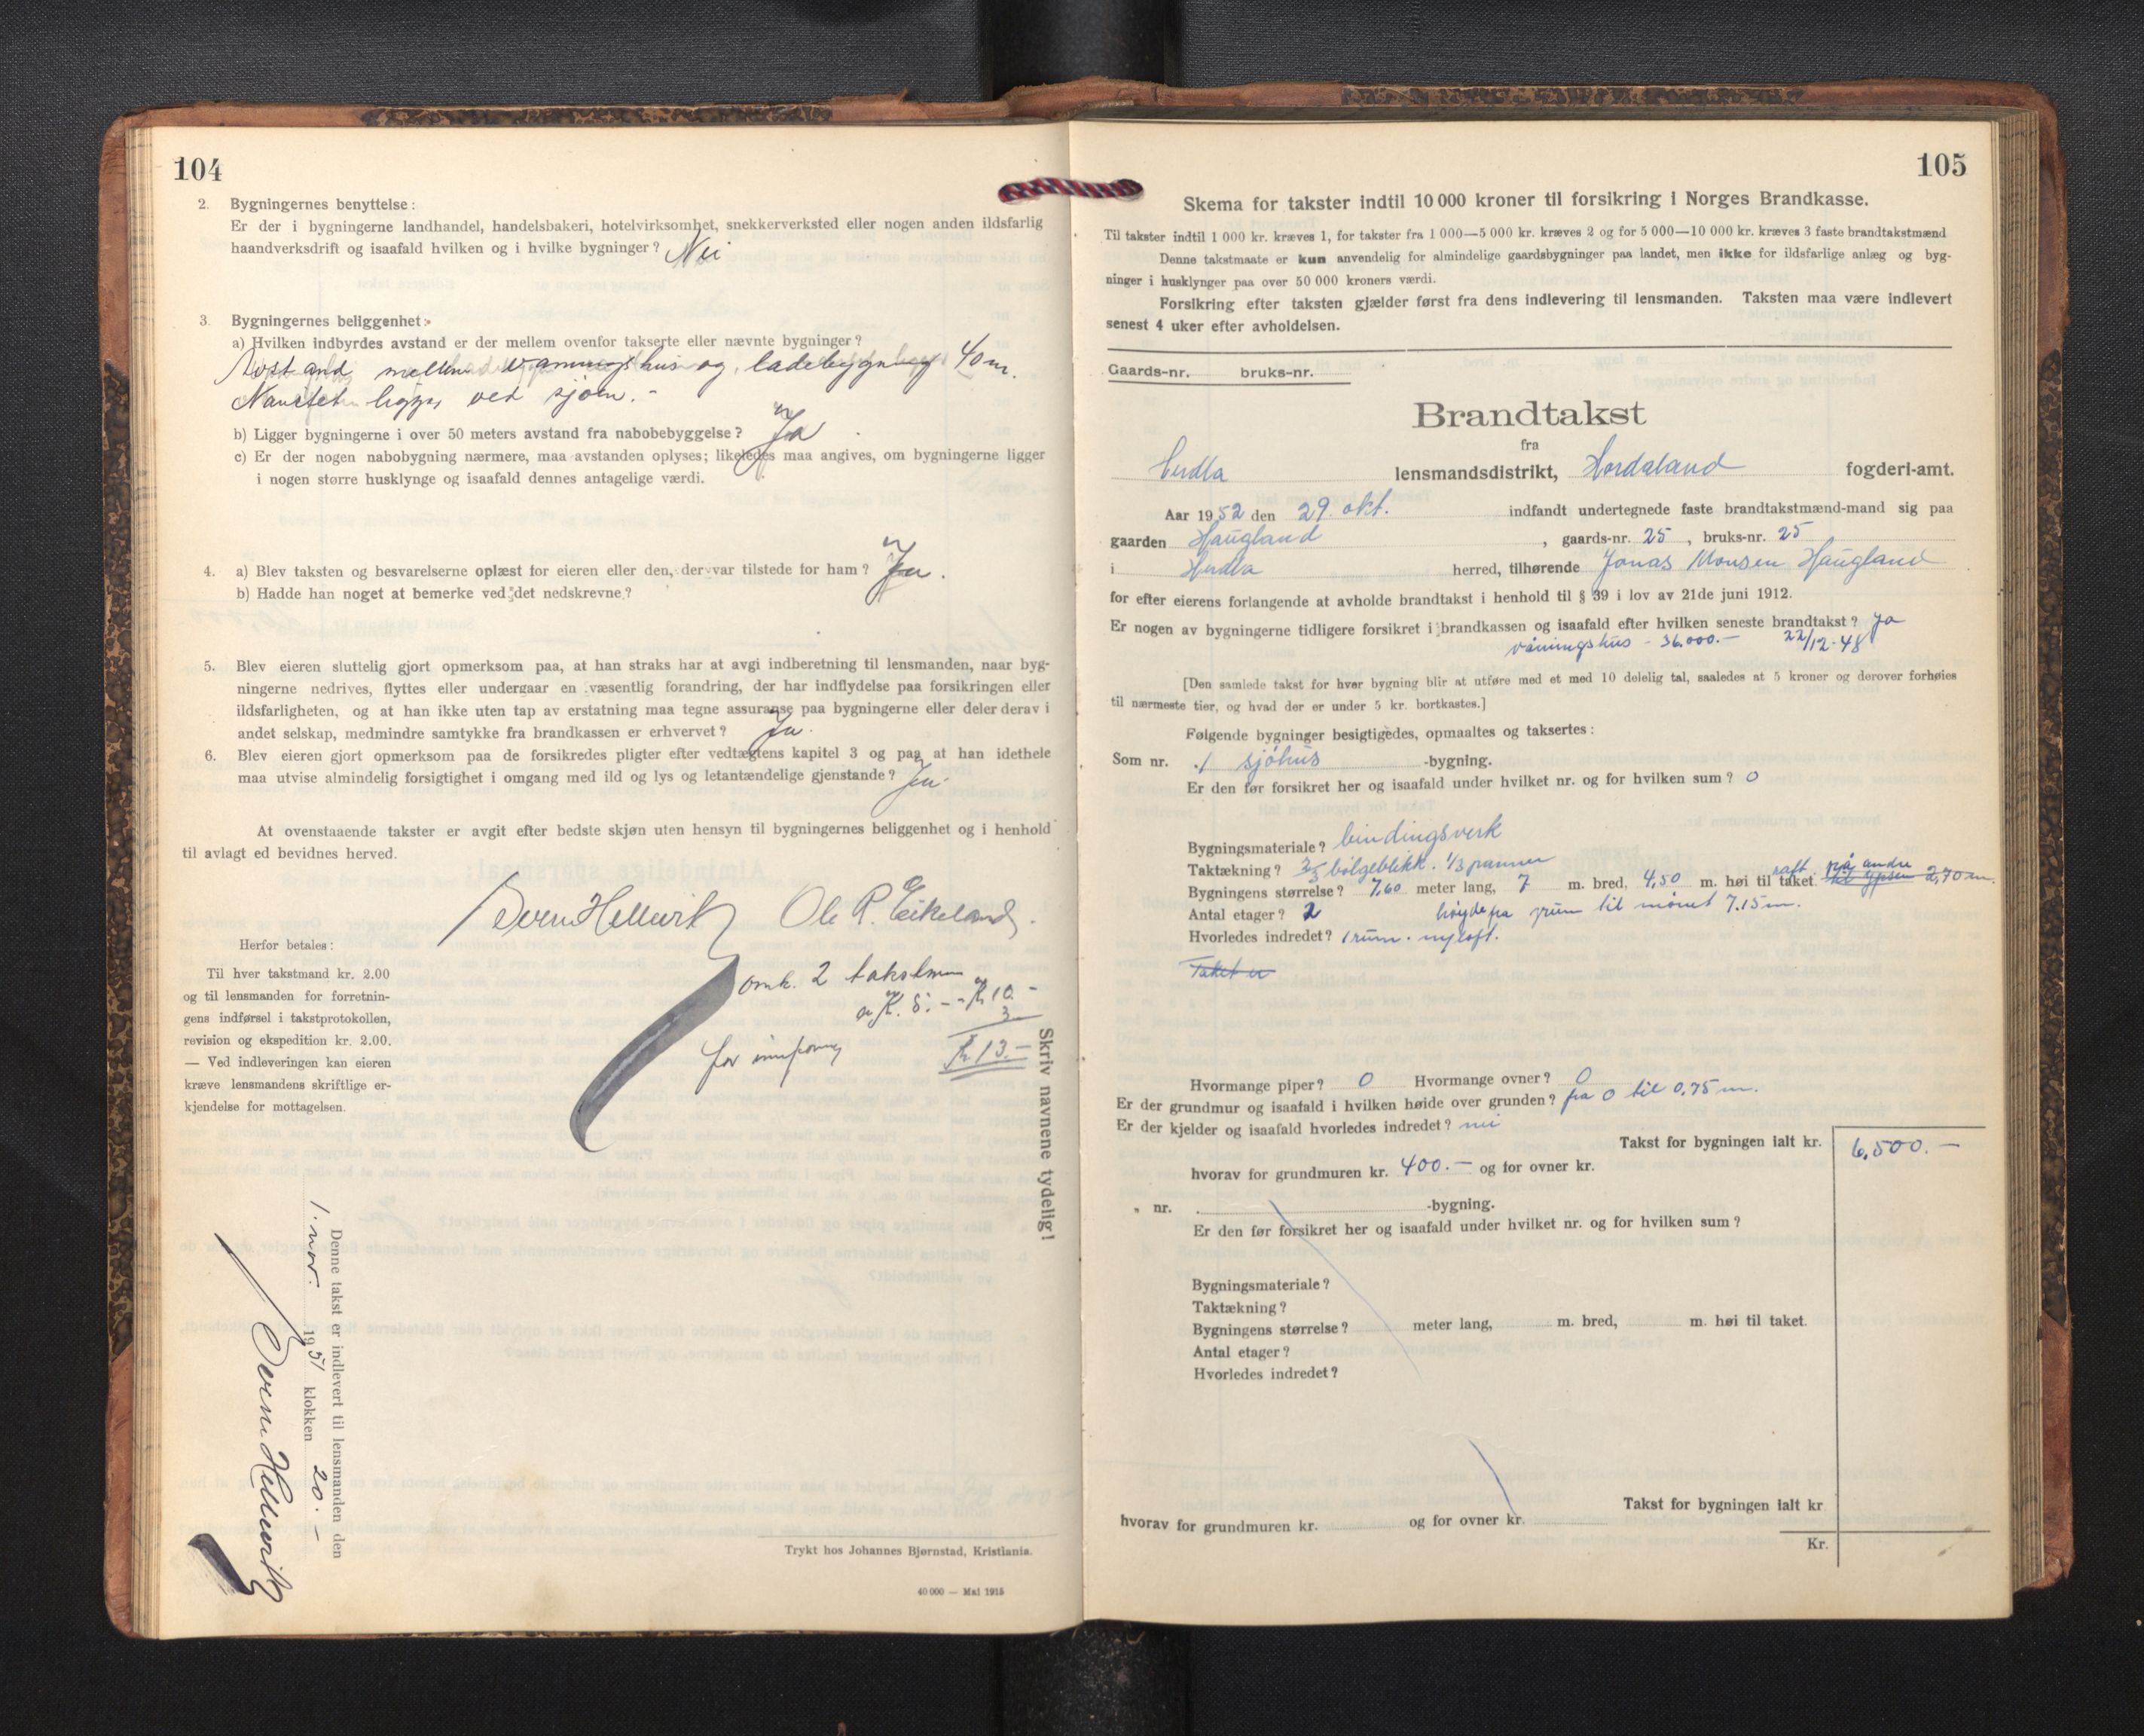 104
2. Bygningernes benyttelse:
Er der i bygningerne landhandel, handelsbakeri, hotelvirksomhet, snekkerverksted eller nogen anden ildsfarlig
haandverksdrift og isaafald hvilken og i hvilke bygninger? Nei
3. Bygningernes beliggenhet:
a) Hvilken indbyrdes avstand er der mellem ovenfor takserte eller nævnte bygninger?
Avstand mellem vaaningshus og ladebygning 40 m.
Naustet ligger ved sjøen. -
b) Ligger bygningerne i over 50 meters avstand fra nabobebyggelse? Ja
c) Er der nogen nabobygning nærmere, maa avstanden oplyses; likeledes maa angives, om bygningerne ligger
i nogen større husklynge og isaafald dennes antagelige værdi.
4. a) Blev taksten og besvarelserne oplæst for eieren eller den, der var tilstede for ham? Ja.
b) Hadde han noget at bemerke ved det nedskrevne?
5. Blev eieren sluttelig gjort opmerksom paa, at han straks har at avgi indberetning til lensmanden, naar byg-
ningerne nedrives, flyttes eller undergaar en væsentlig forandring, der har indflydelse paa forsikringen eller
ildsfarligheten, og at han ikke uten tap av erstatning maa tegne assuranse paa bygningerne eller deler derav i
andet selskap, medmindre samtykke fra brandkassen er erhvervet? Ja.
6. Blev eieren gjort opmerksom paa de forsikredes pligter efter vedtægtens kapitel 3 og paa at han idethele
maa utvise almindelig forsigtighet i omgang med ild og lys og letantændelige gjenstande? Ja
At ovenstaaende takster er avgit efter bedste skjøn uten hensyn til bygningernes beliggenhet og i henhold
til avlagt ed bevidnes herved.
Sverre Hellevik Ole R. Eikeland.
Herfor betales:
Til hver takstmand kr. 2.00
og til lensmanden for forretnin-
gens indførsel i takstprotokollen,
revision og ekspedition kr. 2.00.
— Ved indleveringen kan eieren
kræve lensmandens skriftlige er-
kjendelse for mottagelsen.
omk. 2 takstmenn
a K. 5. - - K 10. -
for innføring 3 -
K 13. -
Skriv navnene tydelig!
Denne takst er indlevert til lensmanden den
1. nov. 1951 klokken 20. -
Sverre Hellevik
Trykt hos Johannes Bjørnstad, Kristiania.
40 000 — Mai 1915
105
Skema for takster indtil 10 000 kroner til forsikring i Norges Brandkasse.
Til takster indtil 1 000 kr. kræves 1, for takster fra 1 000—5 000 kr. kræves 2 og for 5 000—10 000 kr. kræves 3 faste brandtakstmænd
Denne takstmaate er kun anvendelig for almindelige gaardsbygninger paa landet, men ikke for ildsfarlige anlæg og byg-
ninger i husklynger paa over 50 000 kroners værdi.
Forsikring efter taksten gjælder først fra dens indlevering til lensmanden. Taksten maa være indlevert
senest 4 uker efter avholdelsen.
Gaards-nr. bruks-nr.
Brandtakst
fra
Herdla lensmandsdistrikt, Hordaland fogderi-amt.
Aar 1952 den 29. okt. indfandt undertegnede faste brandtakstmænd-mand sig paa
gaarden Haugland, gaards-nr. 25, bruks-nr. 25
i Herdla herred, tilhørende Jonas Monsen Haugland
for efter eierens forlangende at avholde brandtakst i henhold til § 39 i lov av 21de juni 1912.
Er nogen av bygningerne tidligere forsikret i brandkassen og isaafald efter hvilken seneste brandtakst? Ja
våningshus - 36.000.- 22/12-48
[Den samlede takst for hver bygning blir at utføre med et med 10 delelig tal, saaledes at 5 kroner og derover forhøies
til nærmeste tier, og hvad der er under 5 kr. bortkastes.]
Følgende bygninger besigtigedes, opmaaltes og taksertes:
Som nr. 1 sjøhus -bygning.
Er den før forsikret her og isaafald under hvilket nr. og for hvilken sum? 0
Bygningsmateriale? bindingsverk
Taktækning? 2/3 bølgeblikk. 1/3 panner
Bygningens størrelse? 7,60 meter lang, 7 m. bred, 4,50 m. høi til taket. raft. på andre 2,70 m.
Antal etager? 2 høyde fra grunn til mønet 7.15 m.
Hvorledes indredet? 1 rum. og loft.
Taket er
Hvormange piper? 0 Hvormange ovner? 0
Er der grundmur og isaafald i hvilken høide over grunden? fra 0 til 0,75 m.
Er der kjelder og isaafald hvorledes indredet? nei
Takst for bygningen ialt kr. 6,500.-
hvorav for grundmuren kr. 400.- og for ovner kr.
" nr. -bygning.
Er den før forsikret her og isaafald under hvilket nr. og for hvilken sum?
Bygningsmateriale?
Taktækning?
Bygningens størrelse? meter lang, m. bred, m. høi til taket.
Antal etager?
Hvorledes indredet?
Takst for bygningen ialt kr
hvorav for grundmuren kr. og for ovner kr.
Kr.